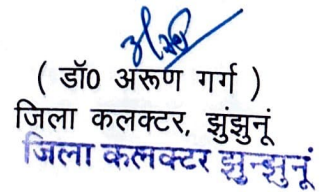 ( डॉ0 अरूण गर्ग )
जिला कलक्टर, झुंझुनूं
जिला कलक्टर झुन्झुनूं